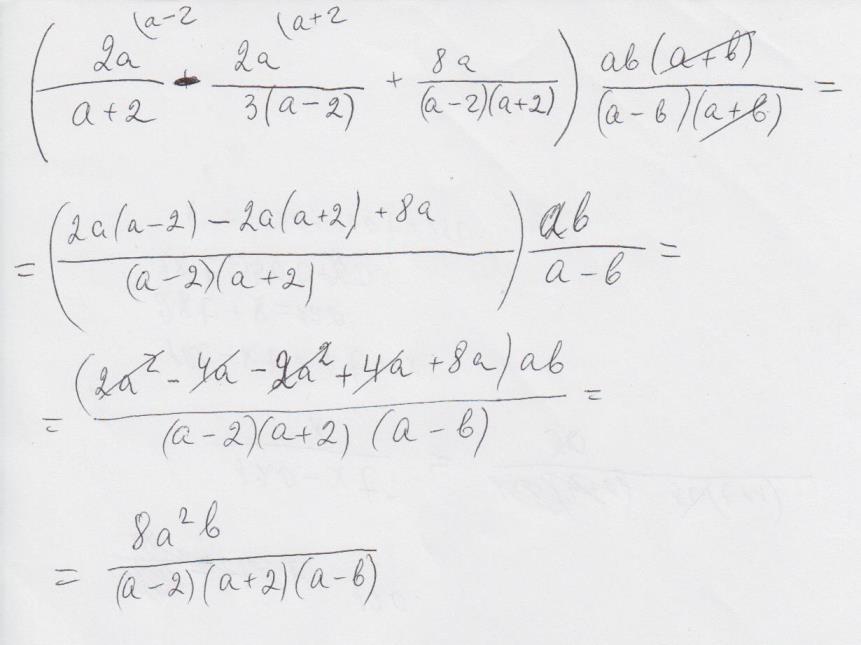 (2a/(a+2) (a-2 - 2a/3(a-2) (a+2 + 8a/(a-2)(a+2)) ab(a+b)/(a-b)(a+b) =
= ((2a(a-2) - 2a(a+2) + 8a)/(a-2)(a+2)) ab/(a-b) =
= (2a² - 4a - 2a² + 4a + 8a)ab/(a-2)(a+2)(a-b) =
= 8a²b/(a-2)(a+2)(a-b)